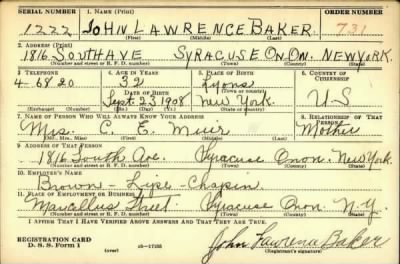 SERIAL NUMBER 1. NAME (Print) ORDER NUMBER
1222 JOHN LAWRENCE BAKER 731
(First) (Middle) (Last)
2. ADDRESS (Print)
1816 SOUTH AVE SYRACUSE ONON. NEW YORK.
(Number and street or R. F. D. number) (Town) (County) (State)
3. TELEPHONE 4. AGE IN YEARS 5. PLACE OF BIRTH 6. COUNTRY OF CITIZENSHIP
4-6820 32 Lyons
DATE OF BIRTH (Town or county)
Sept. 23 1908 New York. U S
(Exchange) (Number) (Mo.) (Day) (Yr.) (State or country)
7. NAME OF PERSON WHO WILL ALWAYS KNOW YOUR ADDRESS 8. RELATIONSHIP OF THAT PERSON
Mrs. C. E. Muir Mother
(Mr., Mrs., Miss) (First) (Middle) (Last)
9. ADDRESS OF THAT PERSON
1816 South Ave. Syracuse Onon. New York
(Number and street or R. F. D. number) (Town) (County) (State)
10. EMPLOYER'S NAME
Brown - Lype - Chapin
11. PLACE OF EMPLOYMENT OR BUSINESS
Marcellus Street Syracuse Onon N-Y
(Number and street or R. F. D. number) (Town) (County) (State)
I AFFIRM THAT I HAVE VERIFIED ABOVE ANSWERS AND THAT THEY ARE TRUE.
REGISTRATION CARD
D. S. S. Form 1 (over) 16-17105 John Lawrence Baker
(Registrant's signature)